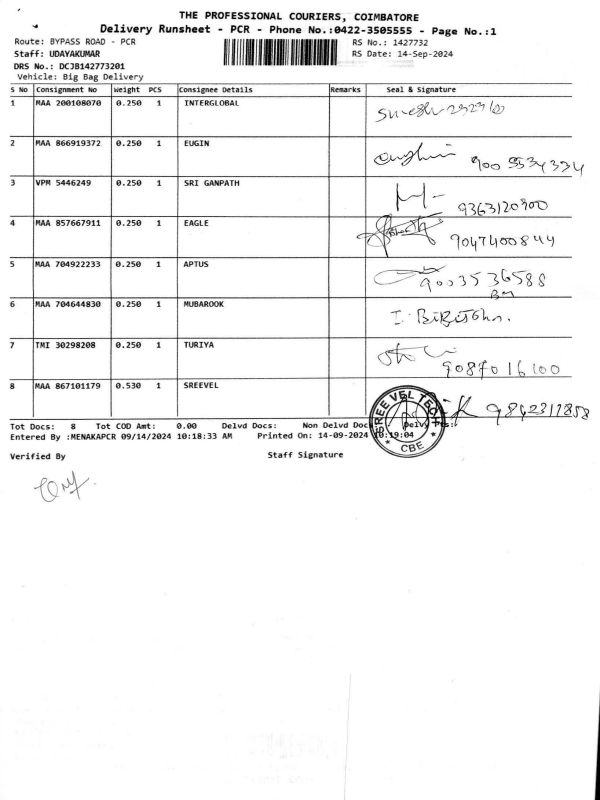 THE PROFESSIONAL COURIERS, COIMBATORE
Delivery Runsheet - PCR - Phone No.:0422-3505555 - Page No.:1
Route: BYPASS ROAD - PCR RS No.: 1427732
Staff: UDAYAKUMAR RS Date: 14-Sep-2024
DRS No.: DCJB142773201
Vehicle: Big Bag Delivery
S No Consignment No Weight PCS Consignee Details Remarks Seal & Signature
1 MAA 200108070 0.250 1 INTERGLOBAL
2 MAA 866919372 0.250 1 EUGIN 900 5534334
3 VPM 5446249 0.250 1 SRI GANPATH 9363120900
4 MAA 857667911 0.250 1 EAGLE 9047400844
5 MAA 704922233 0.250 1 APTUS 9003536588
6 MAA 704644830 0.250 1 MUBAROOK
7 TMI 30298208 0.250 1 TURIYA 9087016100
8 MAA 867101179 0.530 1 SREEVEL 9842317858
SREE VEL TECH
CBE
Tot Docs: 8 Tot COD Amt: 0.00 Delvd Docs: Non Delvd Doc
Entered By :MENAKAPCR 09/14/2024 10:18:33 AM Printed On: 14-09-2024 10:19:04
Verified By Staff Signature